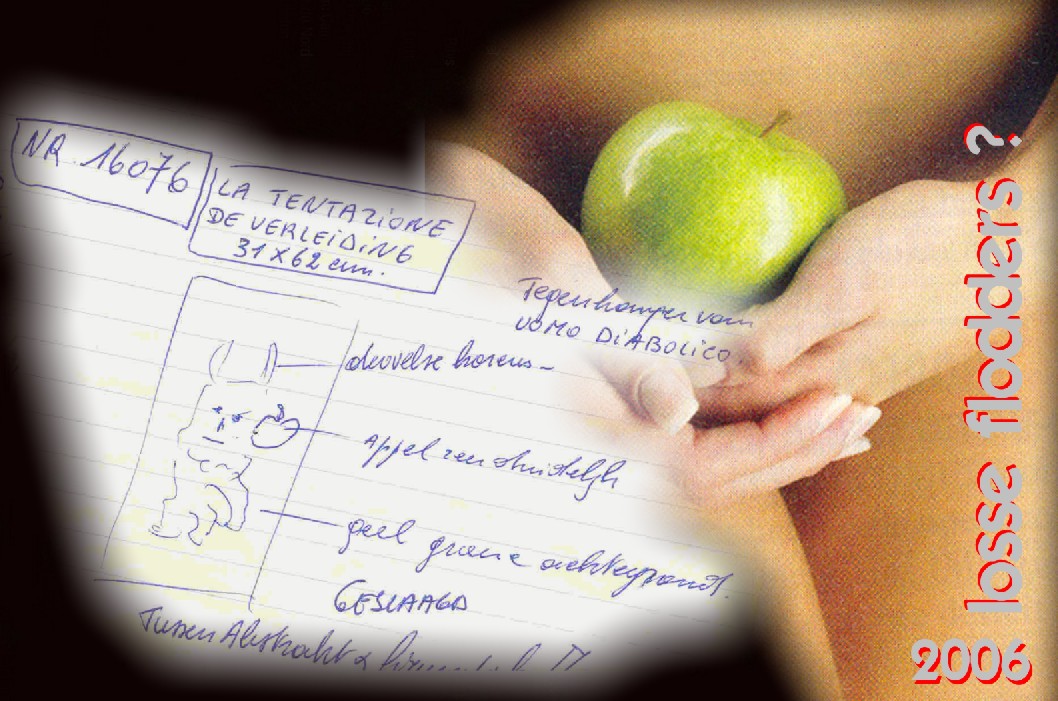 NR. 16076
LA TENTAZIONE
DE VERLEIDING
31 X 62 cm.
Tegenhanger van
UOMO DIABOLICO.
duivelse horens -
Appel zeer duidelijk
geel groene achtergrond.
GESLAAGD
Tussen Abstrakt &
losse flodders ?
2006